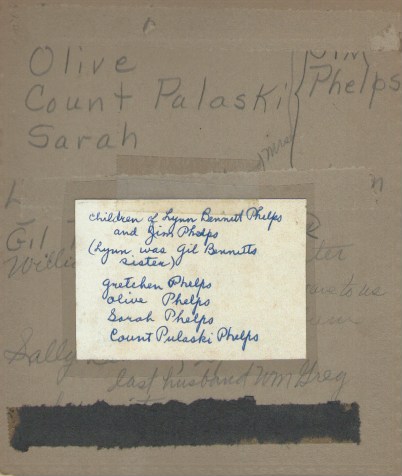 Olive
Count Palaski
Sarah
Jim
Phelps
children of Lynn Bennett Phelps
and Jim Phelps
(Lynn was Gil Bennetts
sister)
Gretchen Phelps
Olive Phelps
Sarah Phelps
Count Pulaski Phelps
Gil
to us
Sally
last husband Wm Greg